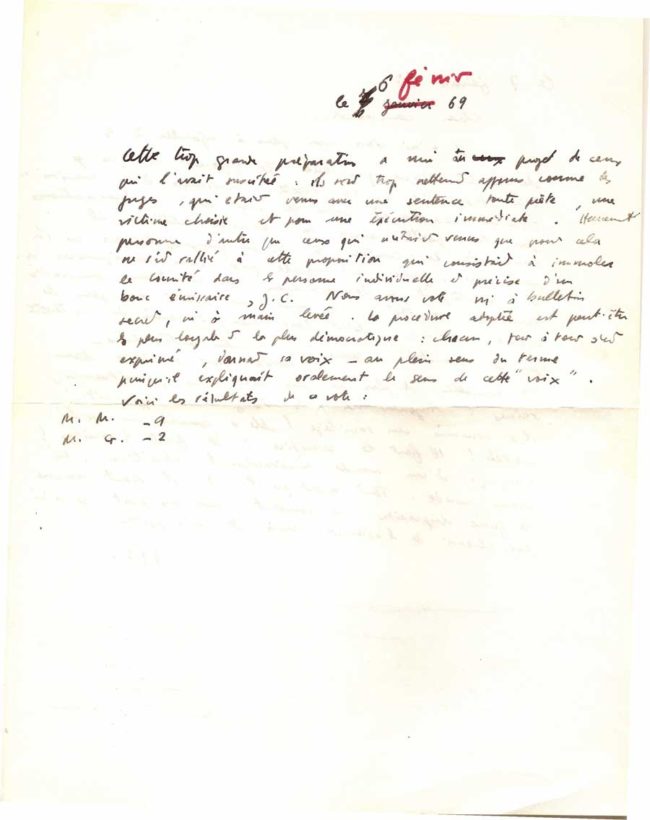 6 février
le janvier 69
Cette trop grande préparation a nui au projet de ceux
qui l'avait suscitée : ils sont trop nettement apparus comme des
juges, qui étaient venus avec une sentence toute prête, une
victime choisie et pour une exécution immédiate.
personne d'autre que ceux qui n'étaient venus que pour cela
ne s'est rallié à cette proposition qui consistait à immoler
le comité dans la personne individuelle et précise d'un
bouc émissaire, J.C. Nous avons voté ni à bulletin
secret, ni à main levée. La procédure adoptée est peut-être
la plus loyale et la plus démocratique : chacun, tour à tour s'est
exprimé, donnant sa voix – au plein sens du terme
puisqu'il expliquait oralement le sens de cette "voix".
Voici les résultats de ce vote :
M. M. – 9
M. G. – 2